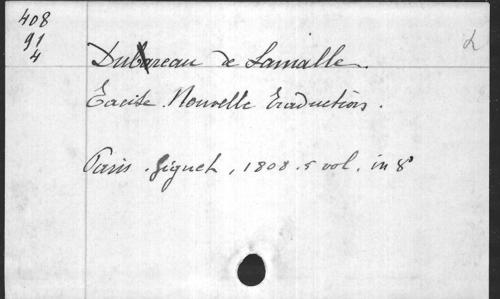 408
91
4
d
Dubareau de Lamalle.
Tacite. Nouvelle Traduction.
Paris. Giguet, 1808. 5 vol. in 8°